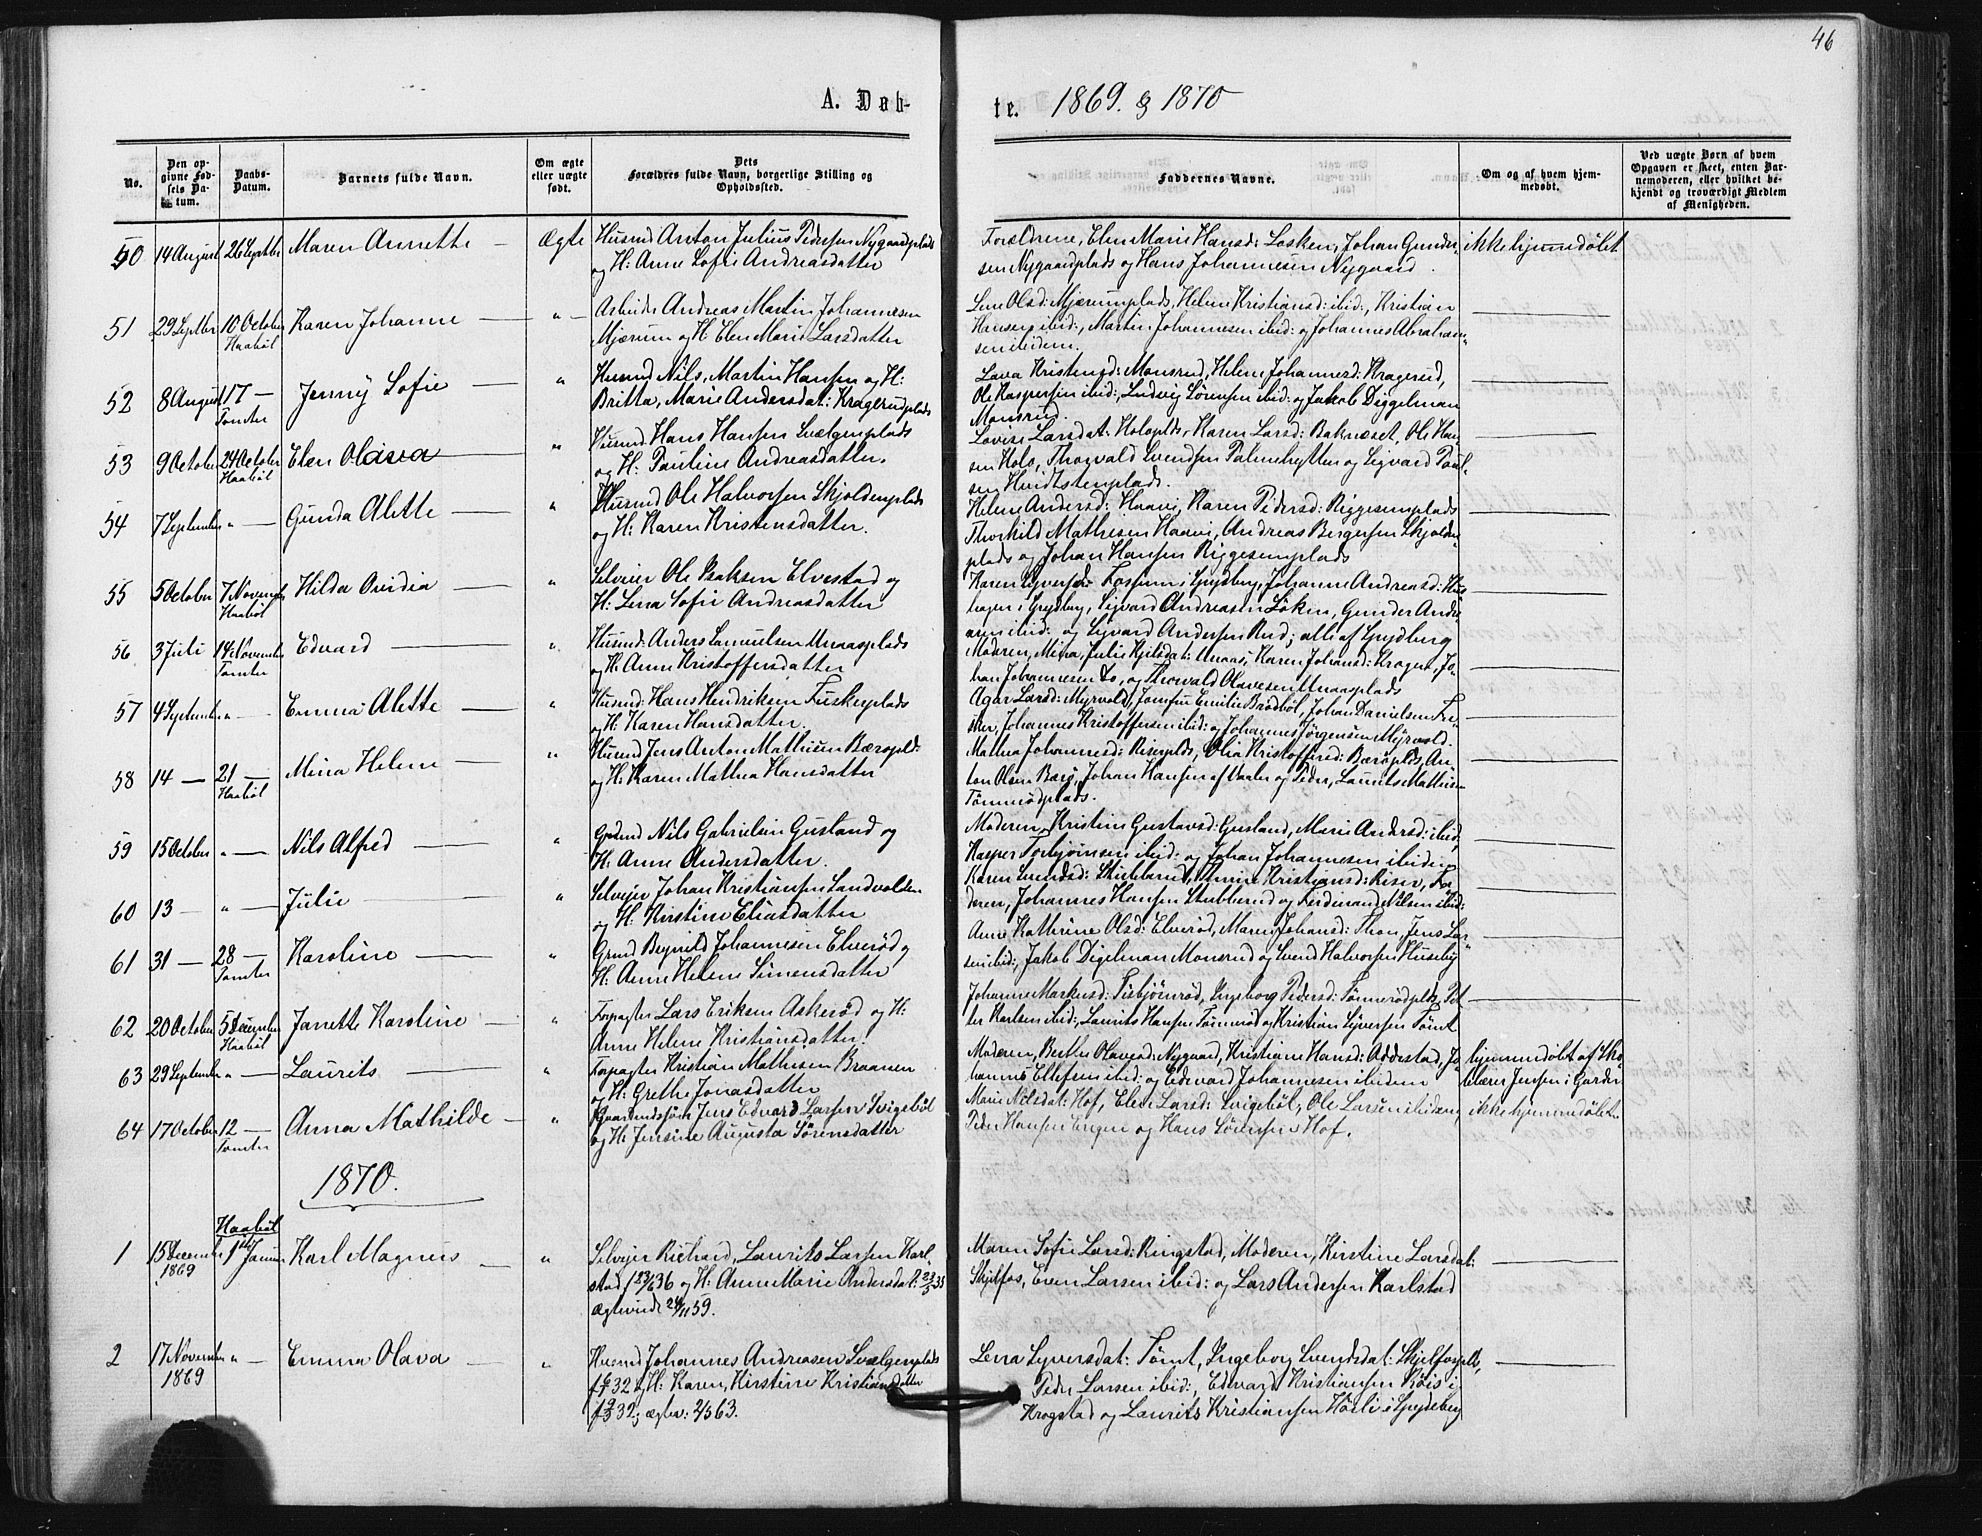 46
A. Døb-
te. 1869. & 1870
No.
Den op-
givne Fød-
sels Da-
tum.
Daabs-
Datum.
Barnets fulde Navn.
Om ægte
eller uægte
født.
Dets
Forældres fulde Navn, borgerlige Stilling og
Opholdssted.
Faddernes Navne.
Om og af hvem hjem-
medøbt.
Ved uægte Børn af hvem
Opgaven er skeet, enten Bar-
nemoderen, eller hvilket be-
kjendt og troværdigt Medlem
af Menigheden.
50 14 August 26 Septbr Maren Annette — Ægte Husmd Anton Julius Pedersen Nygaardplads
og H: Anne Sofie Andreasdatter
Forældrene, Elen Marie Hansd: Løsken, Johan Gunder-
sen Nygaardplads og Hans Johannesen Nygaard. ikke hjemmdøbt
51 29 Septbr 10 October Haabøl Karen Johanne — " — Arbeider Andreas Martin Johannesen
Mjærum og H: Elen Marie Larsdatter
Lene Olsd: Mjærumplads, Helene Kristiansd: ibid:, Kristian
Hansen ibid:, Martin Johannesen ibid: og Johannes Abraham-
sen ibidem.
52 8 August 17 — Tomter Jenny Sofie — " Husmd Nils Martin Hansen og H:
Britta Marie Andersdat: Kragerudplads
Lava Kristensd: Monsrud, Helene Johannesd: Kragerud,
Ole Kaspersen ibid:, Ludvig Sørensen ibid: og Jakob Diggelman
Monsrud.
53 9 October 24 October Haabøl Elen Olava — " Husmd: Hans Hansen Svælgenplads
og H: Pauline Andreasdatter.
Lovise Larsdat: Holsplds, Karen Larsd: Baknæset, Ole Han-
sen Hols, Thorvald Svendsen Palmehytten og Sigvard Poul-
sen
54 7 September " — Gunda Alette — " Husmd Ole Halvorsen Skjoldenplads
og H: Karen Kristensdatter.
Helene Andersd: Haavi, Karen Pedersd: Riggesemplads
Thorkild Mathisen Haavi, Andreas Bergersen Skjolden-
plads og Johan Hansen Riggesemplads
55 5 October 7 Novemb Haabøl Hilda Ovidia — " Selveier Ole Isaksen Elvestad og
H: Lena Sofie Andreasdatter
Karen Syversd: Fossum i Spydberg, Johanne Andreasd: Hus-
hagen i Spydberg, Sigvard Andreasen Løken, Gunder Andre-
asen ibid: og Sigvard Andersen Rud; alle af Spydberg
56 3 Juli 14 November Tomter Edvard — " Husmd: Anders Samuelsen Unaasplads
og H: Anne Kristoffersdatter
Moderen, Mina Julie Kjelsdat: Unaas, Karen Johansd: Kragert, Jo-
han Johannesen do, og Thorvald Olavesen Unaasplads
57 4 September " — Emma Alette — " Husmd: Hans Hendriksen Fuskerplads
og H: Karen Hansdatter.
Agar Larsd: Myrvold, Jomfru Emilie Brødbøl, Johan Danielsen
Johannes Kristoffersen ibid: og Johannes Jørgensen Myrvold.
58 14 — 21 — Haabøl Mina Helene — " Husmd Jens Anton Mathisen Bærøpld:
og H: Karen Mathea Hansdatter
Mathea Johannesd: Riserplds, Olia Kristoffersd: Bærøplds, An-
ton Olsen Bærø, Johan Hansen af Vaaler og Peder Laurits Mathisen
Tønnerødplads.
59 15 October " — Nils Alfred — " Grdmd Nils Gabrielsen Gusland og
H: Anne Andersdatter.
Moderen, Kristine Gustavsd: Gusland, Marie Andersd: ibid,
Kasper Torbjørnsen ibid: og Johan Johannesen ibidem
60 13 — " — Julie — " Selveier Johan Kristiansen Sandvolden
og H: Kirstine Eliasdatter
Karen Svendsd: Stubberud, Thrine Kristiansd: Riser, Fa-
deren, Johannes Hansen Stubberud og Ferdinand Nilsen ibid:
61 31 — 28 — Tomter Karoline — " Grmd Brynild Johannesen Elverød og
H: Anne Helene Simensdatter
Anne Kathrine Olsd: Elverød, Maren Johansd: Thon, Jens Lar-
sen ibid:, Jakob Digelman Monsrud og Svend Halvorsen Huseby
62 20 October 5 December Haabøl Janette Karoline — " Forpagter Lars Eriksen Askerød og H:
Anne Helene Kristiansdatter.
Johanne Markusd: Tisbjønrød, Ingeborg Pedersd: Tønnerødplds, Pet-
ter Karlsen ibid:, Laurits Hansen Tønnerød og Kristian Syversen Tømt
63 29 September " — Laurits — " Forpagter Kristian Mathisen Braanen
og H: Grethe Jonasdatter
Moderen, Berthe Olavesd: Nygaard, Kristiane Hansd: Addestad, Jo-
hannes Ellefsen ibid: og Edevard Johannesen ibidem hjemmdøbt af Sko-
lelærer Jensen i Garder
64 17 October 12 — Tomter Anna Mathilde — " Gaardmdssøn Jens Edvard Larsen Svigebøl
og H: Jensine Augusta Sørensdatter
Marie Nilsdat: Hof, Elen Larsd: Svigebøl, Ole Larsen ibidem,
Peder Hansen Engen og Hans Sørensen Hof. ikke hjemmedøbt
1870.
1 15 December 1869 Haabøl 1ste Januar Karl Magnus — " Selveier Richard Laurits Larsen Karl-
stad f 29/6 36 og H: Anne Marie Andersdat: 23/5 35
Ægteviede 24/11 59.
Maren Sofie Larsd: Ringstad, Moderen, Kirstine Larsdat:
Skjelfos, Even Larsen ibid: og Lars Andersen Karlstad
2 17 November 1869 " — Emma Olava — " Husmd Johannes Andreasen Svælgenplads
32 & H: Karen Kirstine Kristiansdatter
f 9/3 32; ægtev: 2/5 63.
Lena Syversdat: Tømt, Ingeborg Svendsdat: Skjelfosplds,
Peder Larsen ibid:, Edvard Kristiansen Røis i
Krogstad og Laurits Kristiansen Hasli i Spydeberg